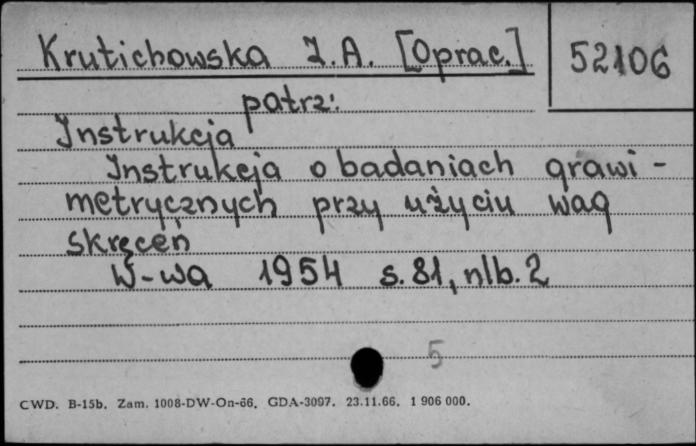 Krutichowska Z.A. [Oprac.]
52106
patrz:
Instrukcja
Instrukcja o badaniach grawi-
metrycznych przy użyciu wag
skręceń
W-wa 1954 s. 81, nlb. 2
5
CWD. B-15b. Zam. 1008-DW-On-66. GDA-3097. 23.11.66. 1 906 000.